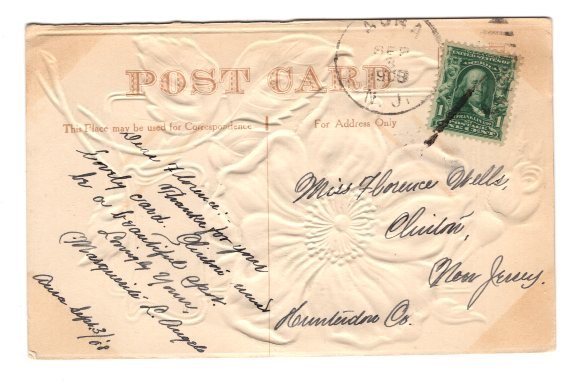 POST CARD
This Place may be used for Correspondence
For Address Only
SEP
3
N. J.
Dear Florence:
Thanks for your
lovely card. Clinton must
be a beautiful place.
Lovingly Yours,
Marguerite L. Angle
Sept. 3/'08
Miss Florence Wells,
Clinton,
New Jersey.
Hunterdon Co.
1